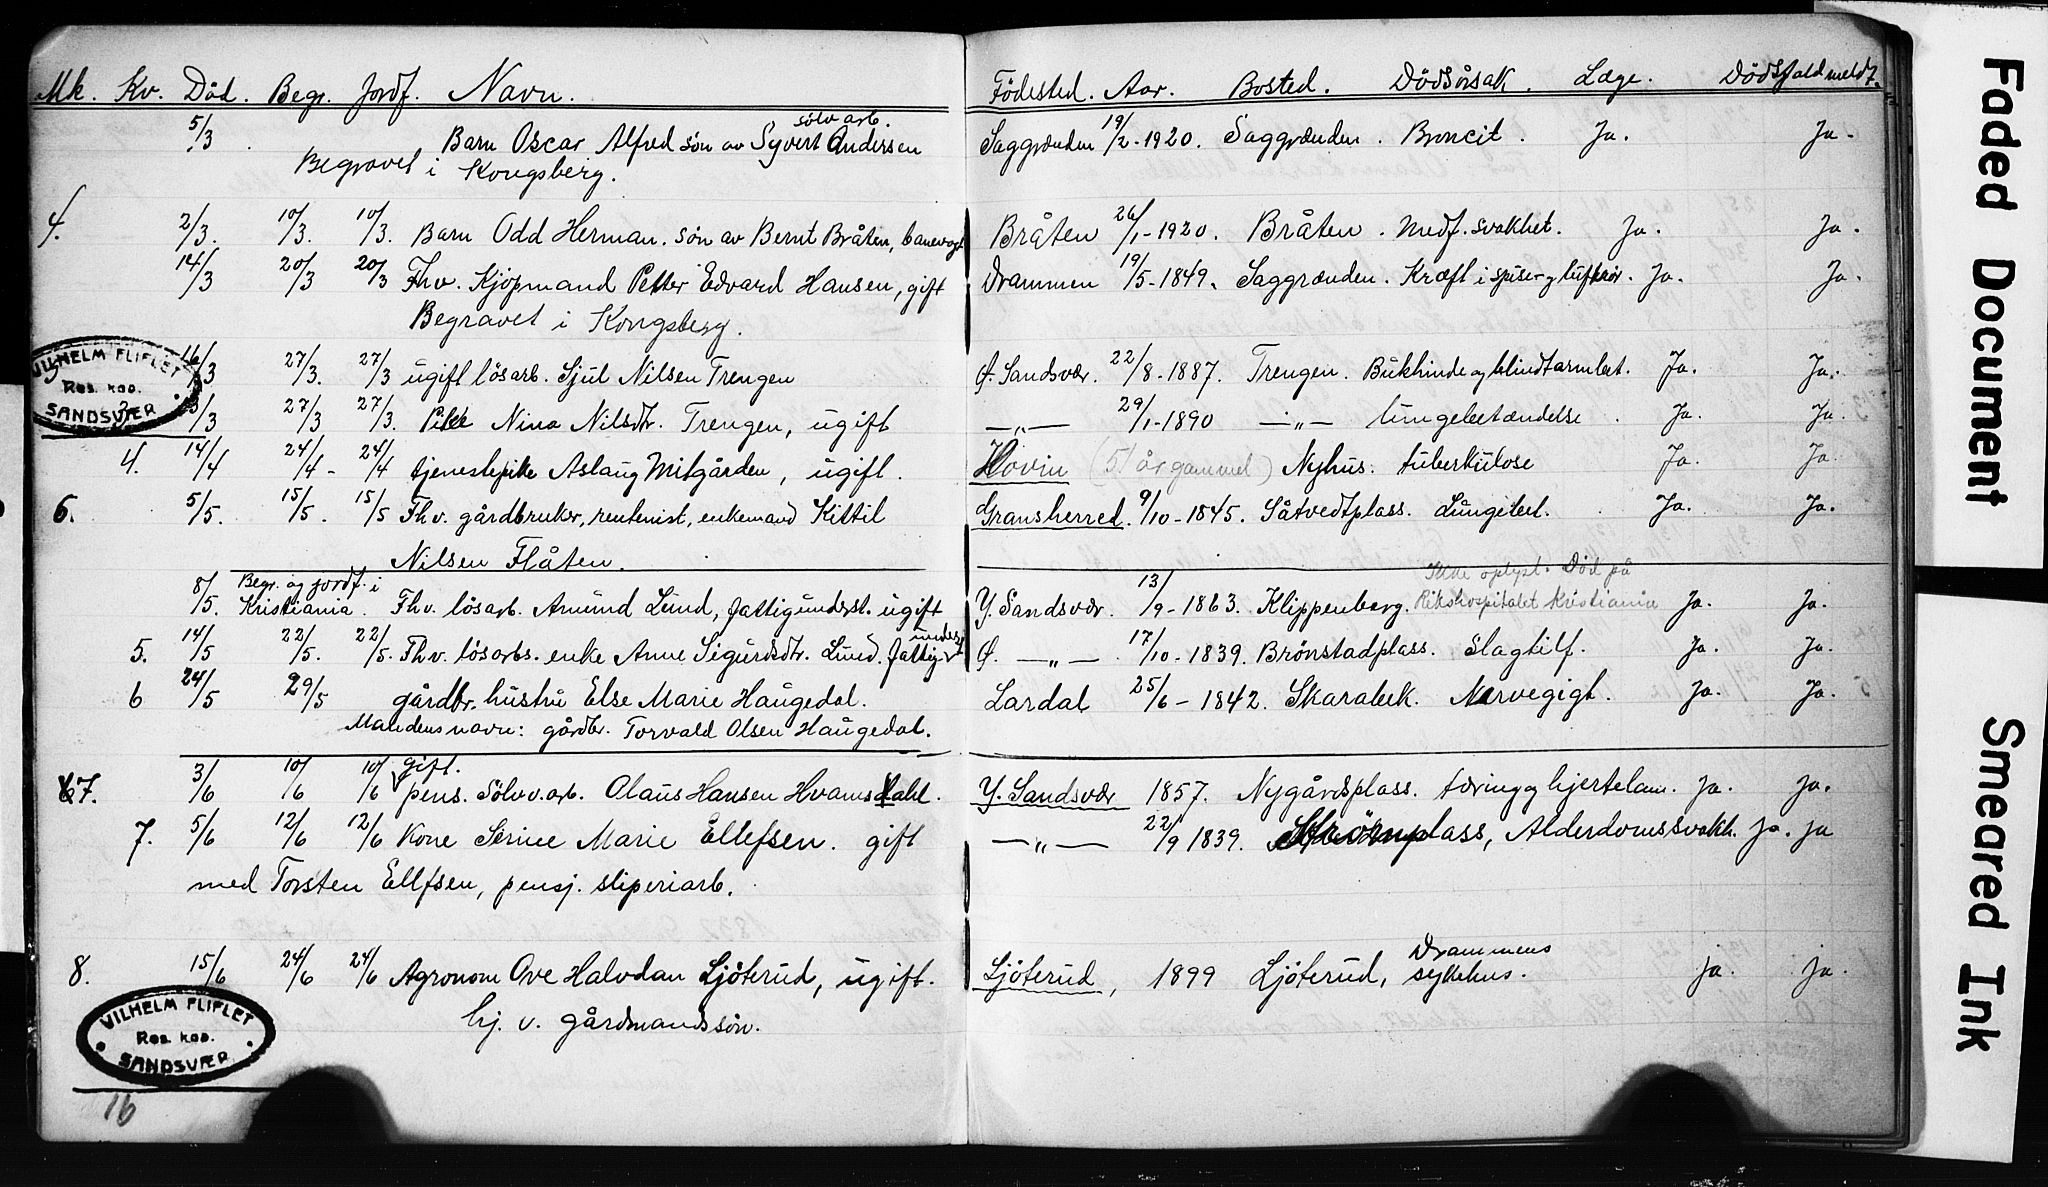 Mk. Kv. Död. Begr. Jordf. Navn. Födested. Aar. Bosted. Dödsårsak. Læge. Dödsfald meldt.
sölv arb.
5/3 Barn Oscar Alfred sön av Syvert Andersen Saggrænden 19/2-1920. Saggrænden. Broncit. Ja. Ja.
Begravet i Kongsberg.
4. 2/3. 10/3. 10/3. Barn Odd Herman. sön av Bernt Bråten, banevogt Bråten 26/1-1920. Bråten. Medf. svakhet. Ja. Ja.
14/3 20/3 20/3 Fhv. Kjöpmand Petter Edvard Hansen, gift Drammen 19/5-1849. Saggrænden. Kræft i spiser og luftrör. Ja. Ja.
Begravet i Kongsberg.
16/3 27/3. 27/3 ugift lösarb. Sjul Nilsen Trengen Ø. Sandsvær. 22/8-1887. Trengen. Bukhinde og blindtarmbet. Ja. Ja.
VILHELM FLIFLET
Res. kap.
SANDSVÆR
3. /3 27/3 27/3. Pike Nina Nilsdtr. Trengen, ugift —„— 29/1-1890 —„— Lungebetændelse. Ja. Ja.
4. 14/4 24/4 - 24/4 tjenestepike Aslaug Mitgården, ugift. Hovin (51 år gammel) Nyhus. tuberkulose Ja. Ja.
6. 5/5. 15/5. 15/5 Fhv. gårdbruker, rentenist, enkemand Kittil Gransherred. 9/10-1845. Såtvedtplass. Lungebet. Ja. Ja.
Nilsen Flåten.
Begr. og jordf. i Ikke oplyst. Död på
8/5. Kristiania. Fhv. lösarb. Amund Lund, fattigunderst. ugift Y. Sandsvær. 13/9-1863. Klippenberg. Rikshospitalet Kristiania Ja. Ja.
underst
5. 14/5 22/5. 22/5. Fhv. lösarbs. enke Anne Sigurdsdtr. Lund. fattig Ø. —„—. 17/10-1839. Brönstadplass. Slagtilf. Ja. Ja.
6 24/5 29/5 gårdbr. hustru Else Marie Haugedal. Lardal 25/6-1842. Skarabek. Nervegigt. Ja. Ja.
Mandens navn: gårdbr. Torvald Olsen Haugedal.
gift.
7. 3/6 10/6 10/6 pens. Sölvv.arb. Olaus Hansen Hvamsdahl. Y. Sandsvær 1857. Nygårdsplass. tæring og hjertelam. Ja. Ja.
7. 5/6 12/6 12/6 Kone Serine Marie Ellefsen. gift —„— 22/9 1839. Strömplass, Alderdomssvakh. Ja. Ja
med Torsten Ellfsen, pensj. sliperiarb.
Drammens
8. 15/6 24/6 24/6 Agronom Ove Halvdan Ljöterud, ugift. Ljöterud, 1899 Ljöterud, sykehus. Ja. Ja.
hj. v. gårdmandssön.
VILHELM FLIFLET
Res. kap.
SANDSVÆR
16
Faded Document
Smeared Ink